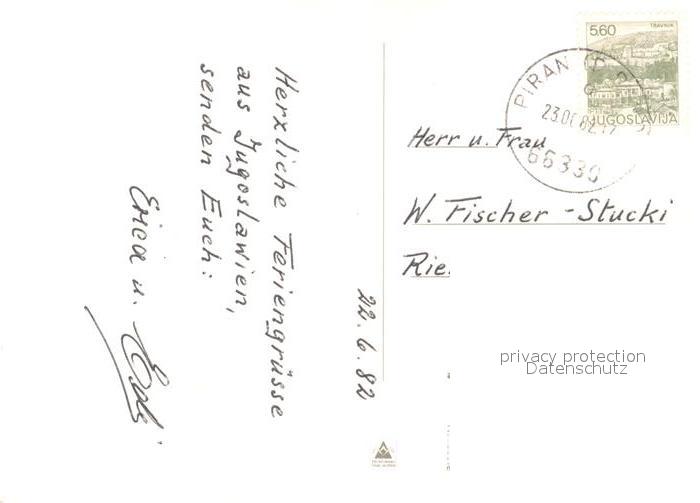 Herzliche Feriengrüsse
aus Jugoslawien,
senden Euch:
Erica u. Edi
22.6.82
5.60
TRAVNIK
JUGOSLAVIJA
PIRAN
66330
Herr u. Frau
W. Fischer-Stucki
Rie.
privacy protection
Datenschutz